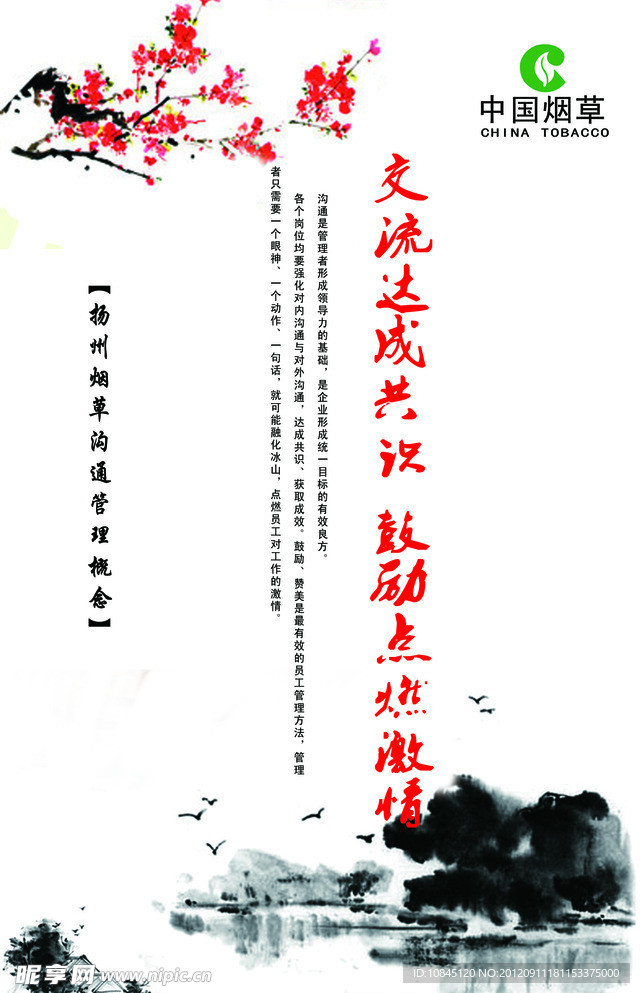 中国烟草
CHINA TOBACCO
交流达成共识 鼓励点燃激情
沟通是管理者形成领导力的基础，是企业形成统一目标的有效良方。
各个岗位均要强化对内沟通与对外沟通，达成共识、获取成效。鼓励、赞美是最有效的员工管理方法，管理
者只需要一个眼神、一个动作、一句话，就可能融化冰山，点燃员工对工作的激情。
【扬州烟草沟通管理概念】
昵享网 www.nipic.cn
ID:10845120 NO:20120911181153375000